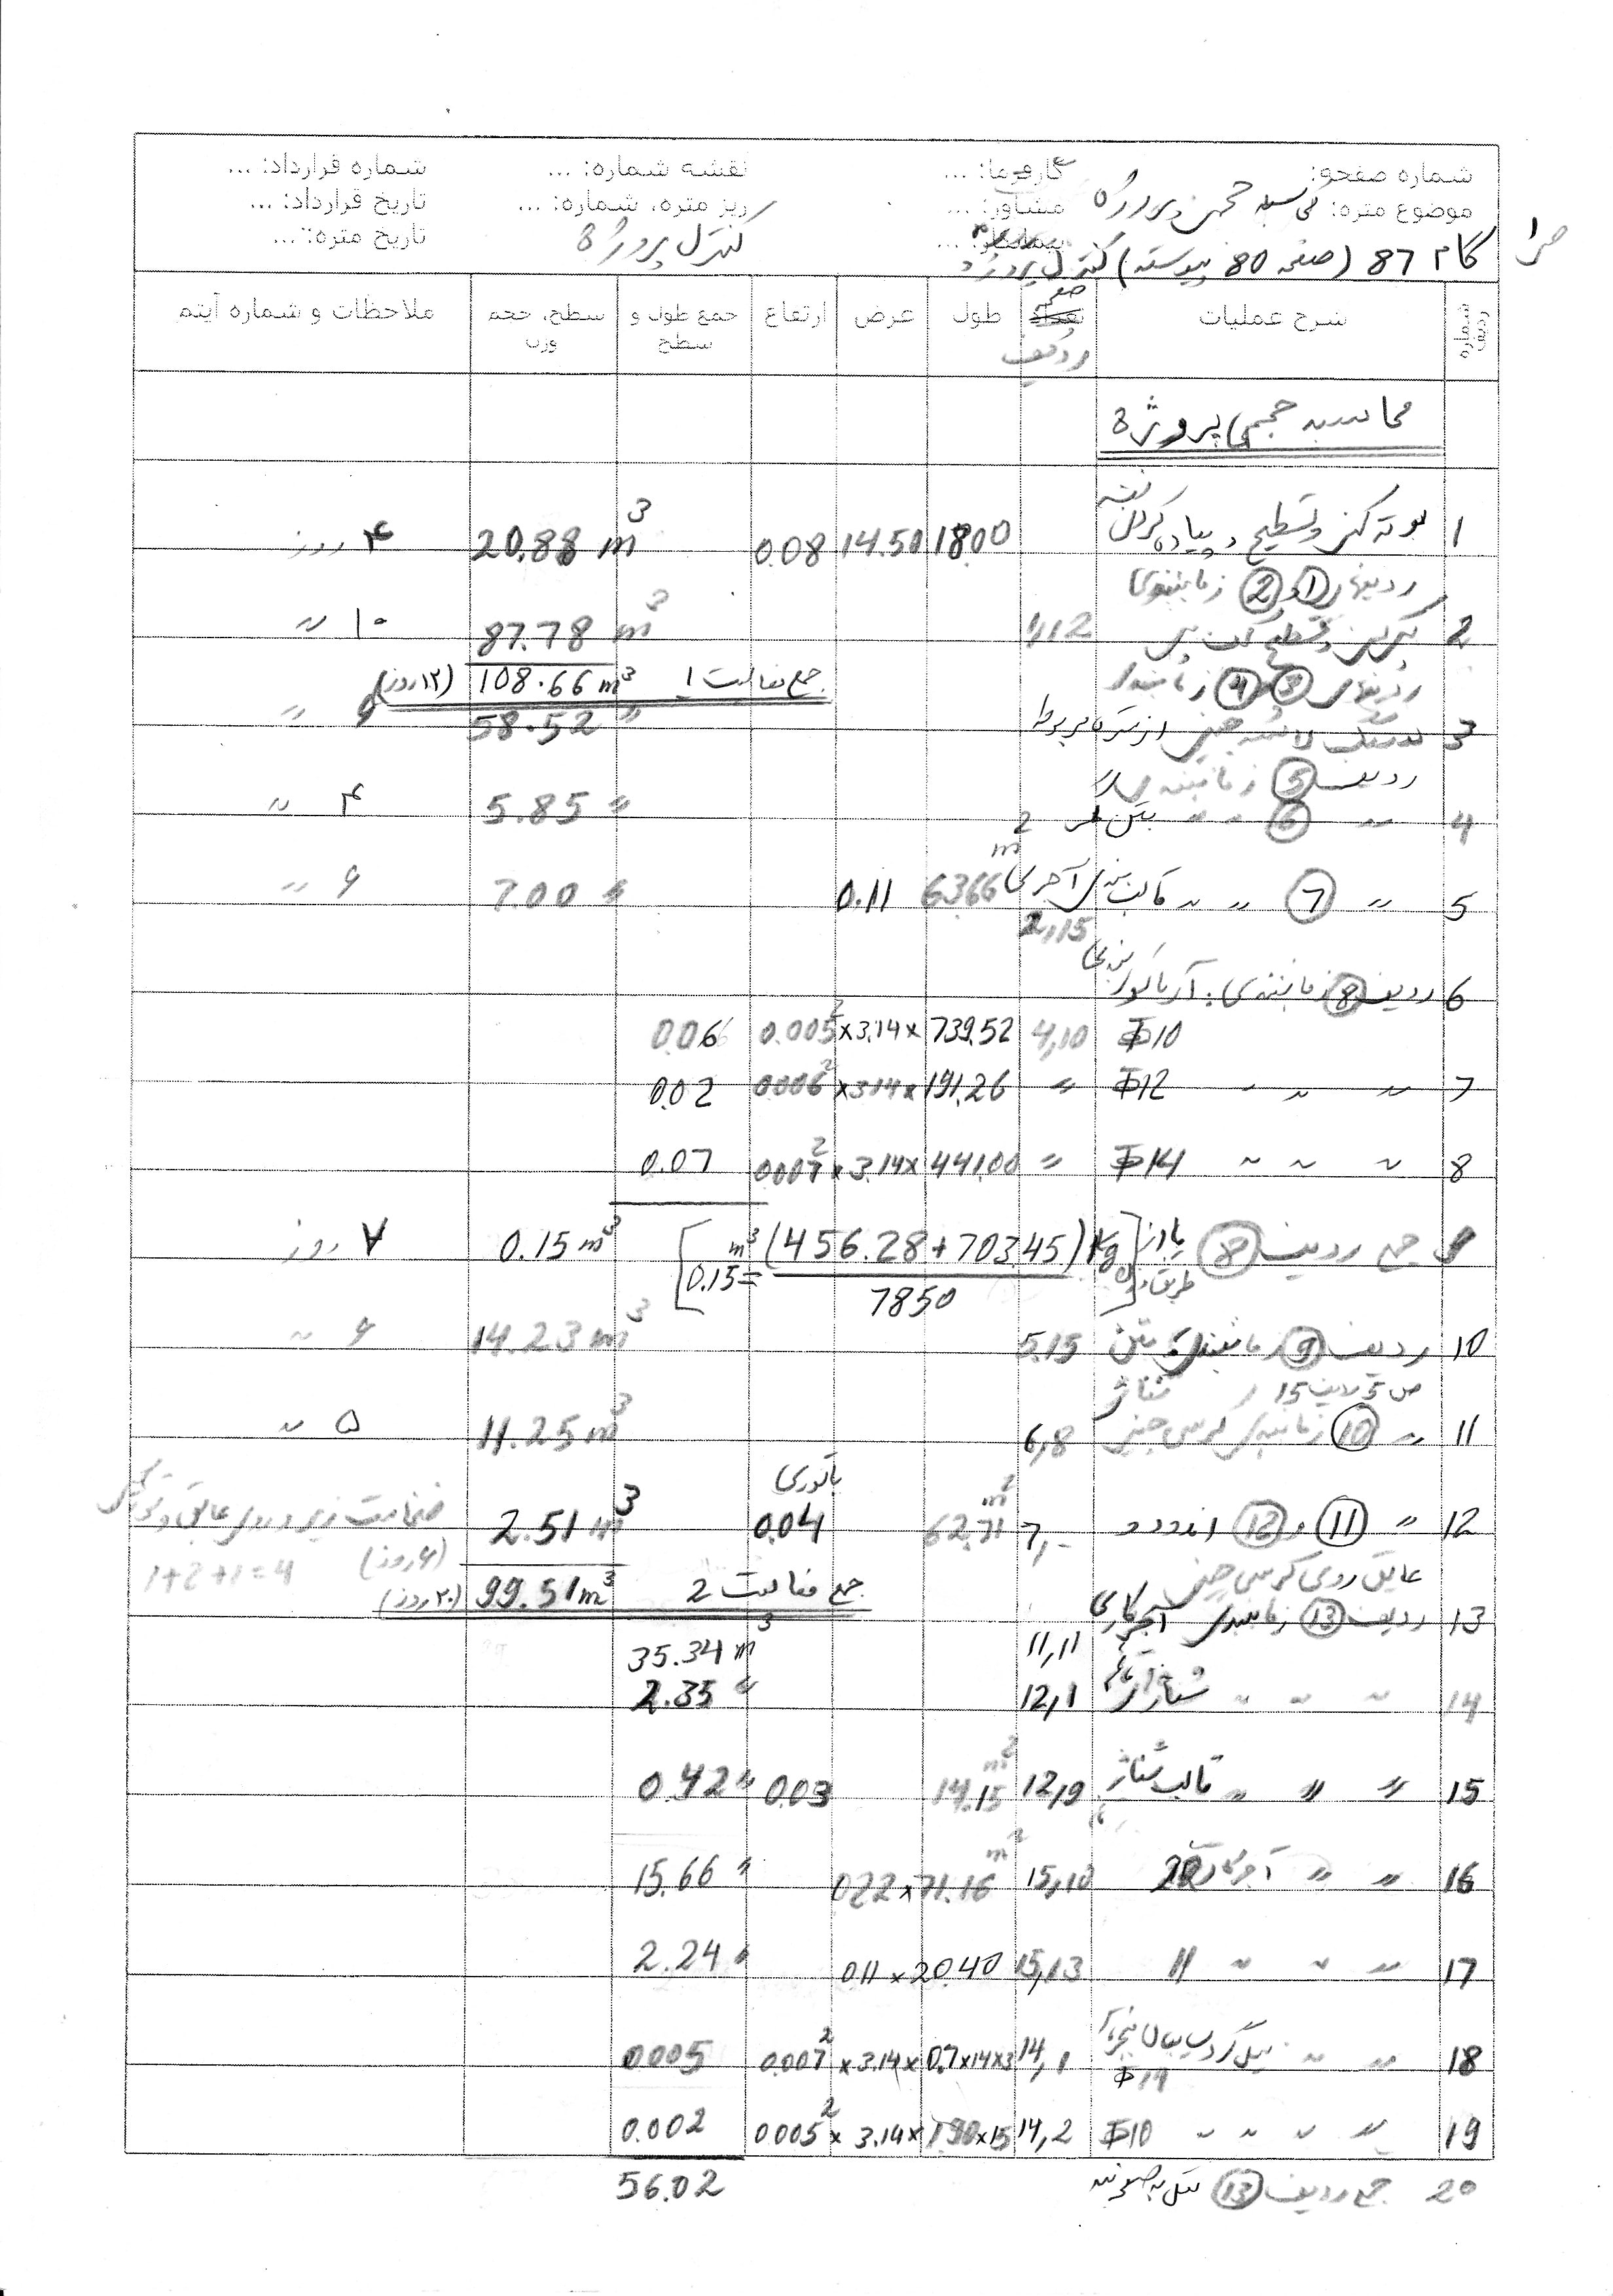 ص ۱
شماره صفحه: کارفرما: ... نقشه شماره: ... شماره قرارداد: ...
موضوع متره: محاسبه حجمی پروژه مشاور: ... ریز متره، شماره: ... تاریخ قرارداد: ...
گام 87 (صفحه 80 پیوسته) کنترل پروژه پیمانکار: ... کنترل پروژه تاریخ متره: ...
شماره ردیف شرح عملیات صفحه ردیف طول عرض ارتفاع جمع طول و سطح سطح، حجم وزن ملاحظات و شماره آیتم
محاسبه حجمی پروژه
1 بوته کنی و تسطیح و پیاده کردن نقشه 18.00 14.50 0.08 20.88 m³ ۴ روز
ردیفهای 1 و 2 زمانبندی
2 پی کنی 1,12 87.78 m³ ۱۰ "
جمع فعالیت 1 108.66 m³ (۱۲ روز)
ردیفهای 3 4 زمانبندی
3 لاشه چینی از متره مربوطه 58.52 " ۶ "
ردیف 5 زمانبندی
4 " 6 " " بتن مگر 5.85 " ۴ "
5 " 7 " " قالب بندی آجری 2,15 63.66 m² 0.11 7.00 " ۶ "
6 ردیف 8 زمانبندی: آرماتور بندی
Φ10 4,10 739.52 × 3.14 × 0.005² 0.066
7 " " " Φ12 " 191.26 × 3.14 × 0.006² 0.02
8 " " " Φ14 " 441.00 × 3.14 × 0.007² 0.07
9 جمع ردیف 8 یا از طریق وزن [(456.28+703.45) Kg / 7850 = 0.15 m³] 0.15 m³ ۷ روز
10 ردیف 9 زمانبندی، بتن 5,15 14.23 m³ ۶ "
ص 5 ردیف 15 شناژ
11 " 10 زمانبندی کرسی چینی 6,8 11.25 m³ ۵ "
12 " 11 و 12 اندود و 7,- 62.71 m² باتوری 0.04 2.51 m³ ضخامت زیر و روی عایق و
عایق روی کرسی چینی (۶ روز) 1+2+1=4
جمع فعالیت 2 99.51 m³ (۲۰ روز)
13 ردیف 13 زمانبندی آجرکاری 11,11 35.34 m³
14 " " " شناژ 12,1 2.35 "
15 " " " قالب شناژ 12,9 14.15 m² 0.03 0.42 "
16 " " آجرکاری 22 15,10 71.16 m² × 0.22 15.66 "
17 " " " 11 15,13 20.40 × 0.11 2.24 "
18 " " " میلگرد Φ14 14,1 0.7×14×3 × 3.14 × 0.007² 0.005
19 " " " Φ10 14,2 1.90×15 × 3.14 × 0.005² 0.002
20 جمع ردیف 13 نقل به صفحه 56.02